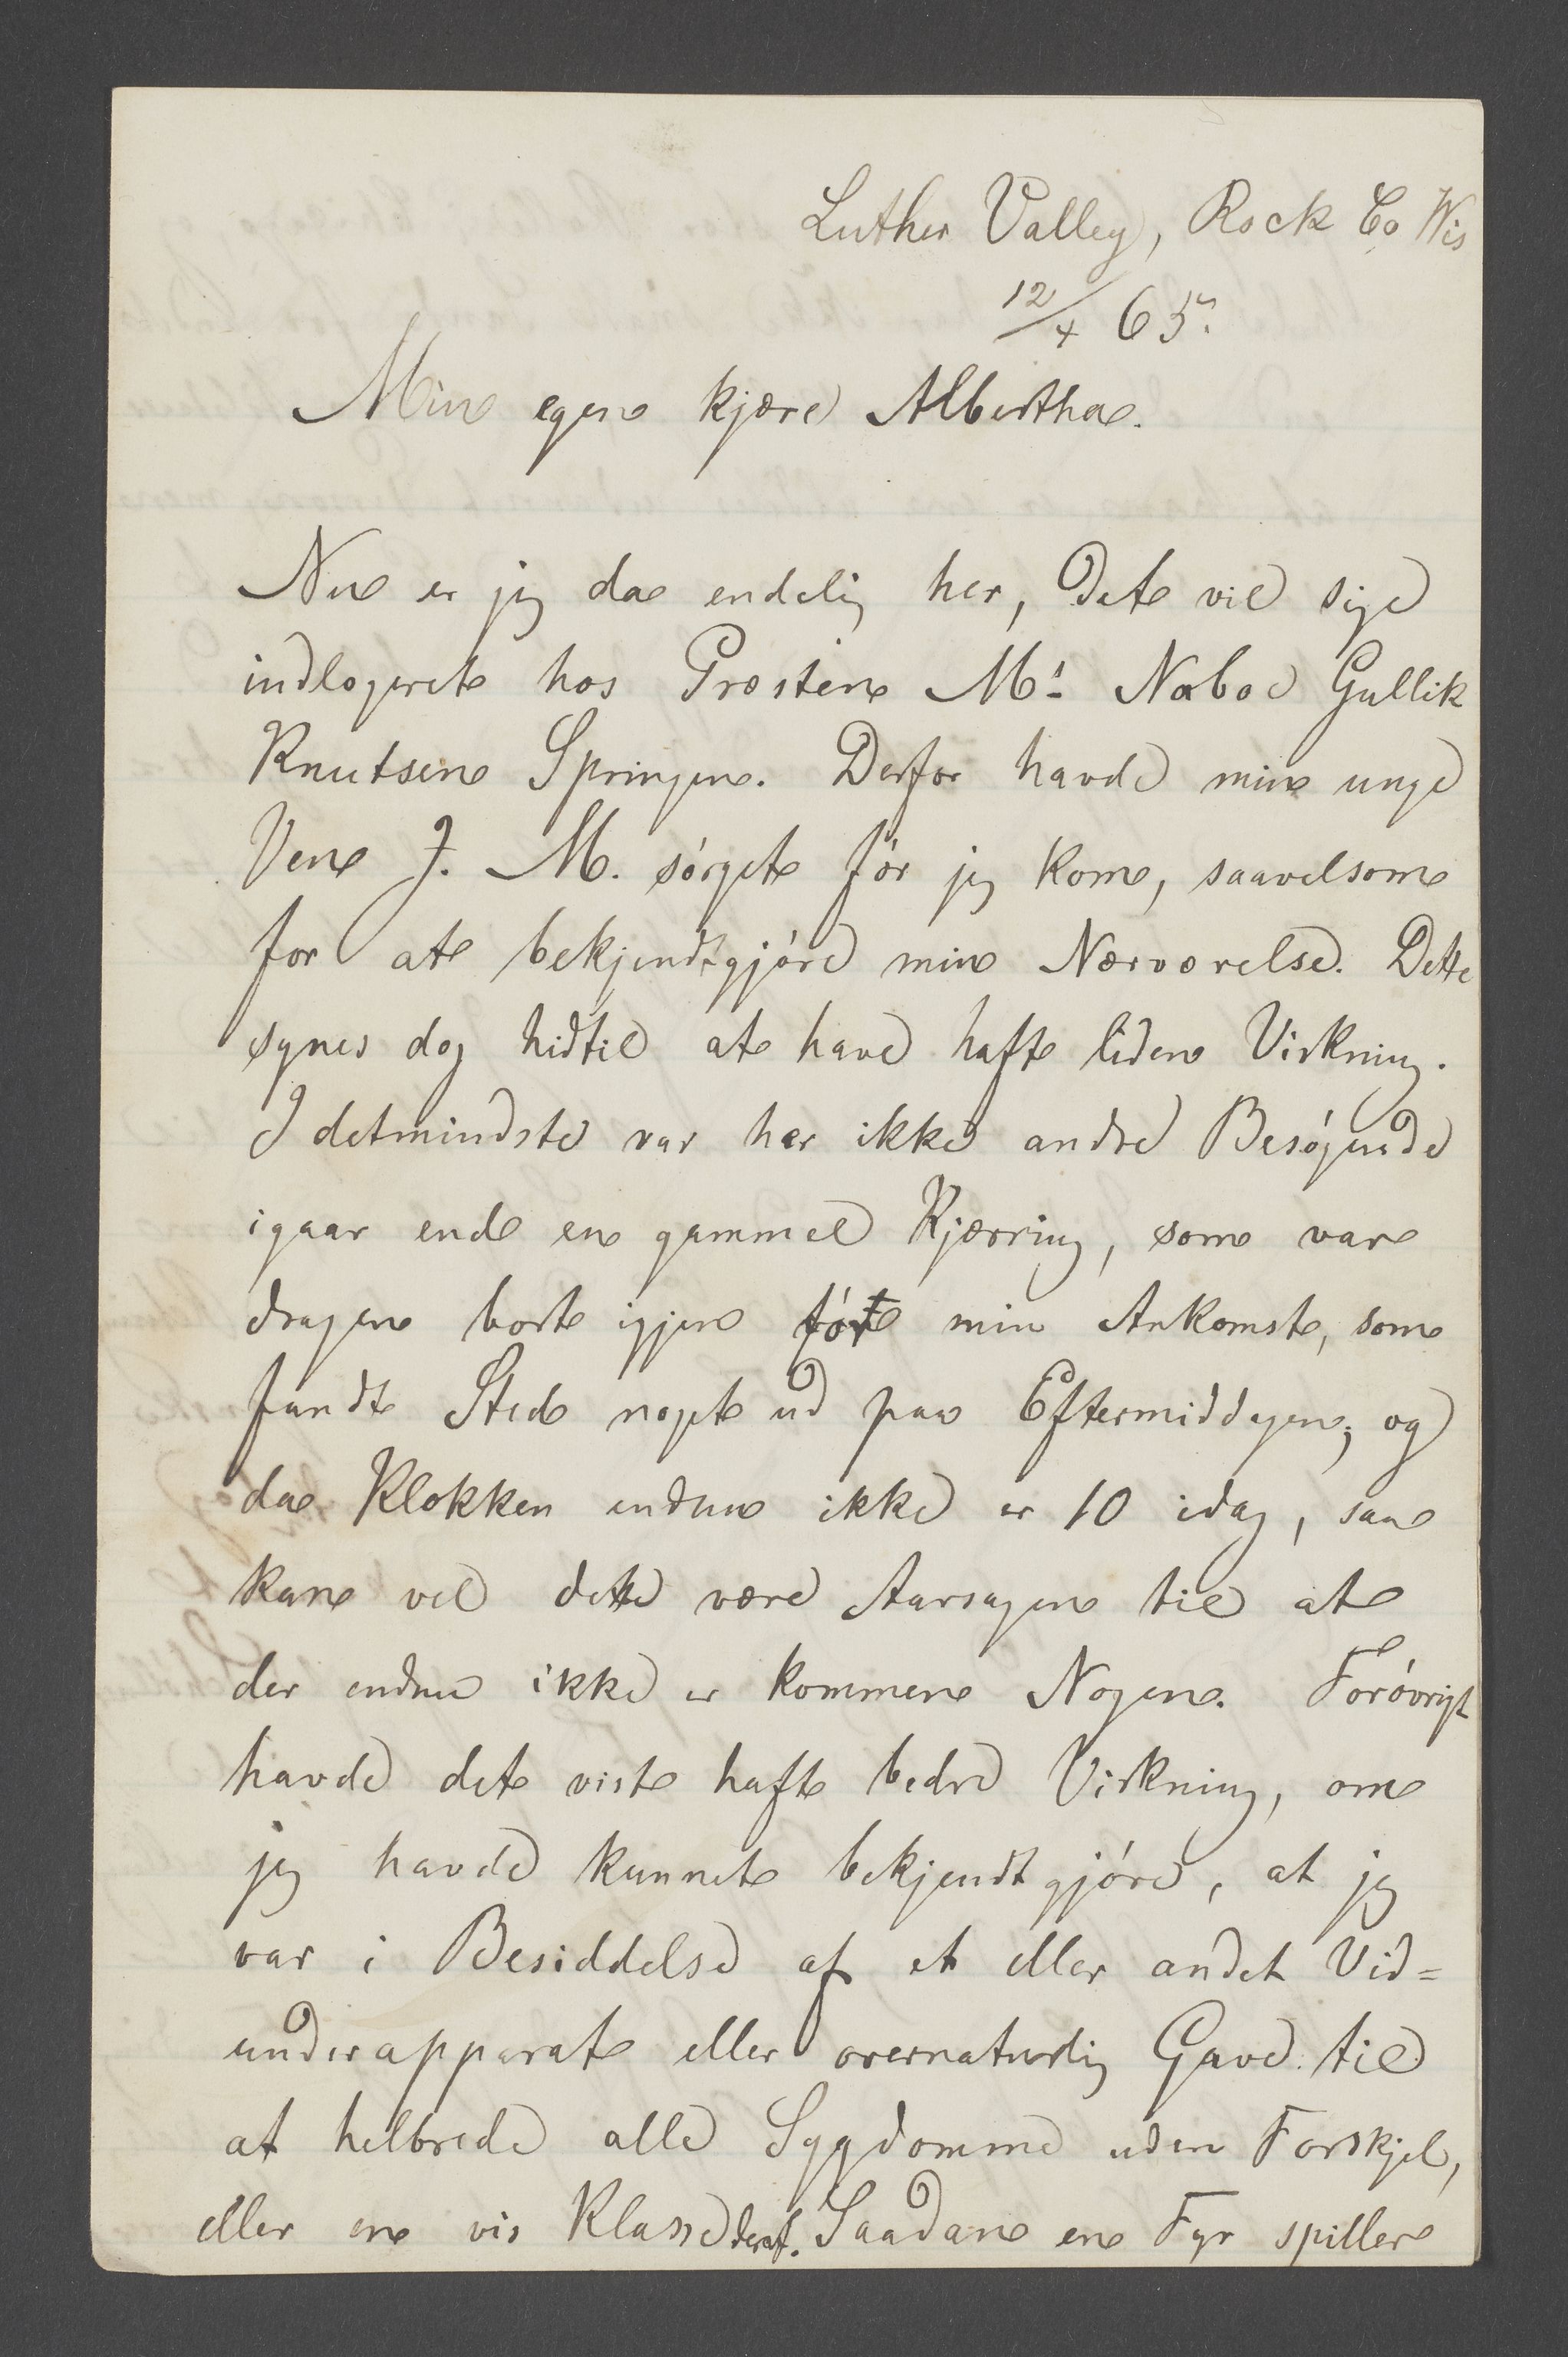 Luther Valley, Rock Co Wis
12/4 65.
Min egen kjære Albertha.
Nu er jeg da endelig her, Det vil sige
indlogeret hos Præsten M's Nabo Gullik
Knutsen Springen. Derfor havde min unge
Ven J. M. sörget för jeg kom, saavelsom
for at bekjendtgjöre min Nærværelse. Dette
synes dog hidtil at have haft liden Virkning.
I detmindste var her ikke andre Besögende
igaar end en gammel Kjærring, som var
dragen bort igjen för min Ankomst, som
fandt Sted noget ud paa Eftermiddagen; og
da Klokken endnu ikke er 10 idag, saa
kan vel dette være Aarsagen til at
der endnu ikke er kommen Nogen. Forövrigt
havde det vist haft bedre Virkning, om
jeg havde kunnet bekjendtgjöre, at jeg
var i Besiddelse af et eller andet Vid=
underapparat eller overnaturlig Gave til
at helbrede alle Sygdomme uden Forskjel,
eller en vis Klasse deraf. Saadan en Fyr spiller